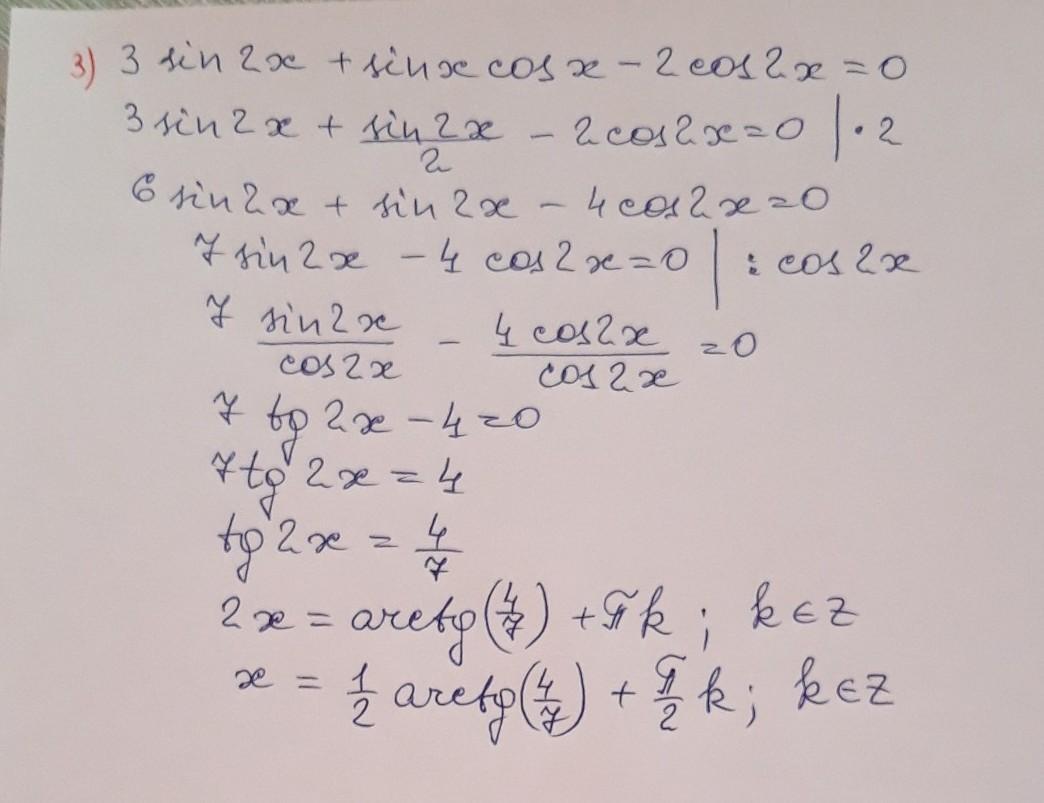 3) 3 sin 2x + sin x cos x - 2 cos 2x = 0
3 sin 2x + sin 2x / 2 - 2 cos 2x = 0 | · 2
6 sin 2x + sin 2x - 4 cos 2x = 0
7 sin 2x - 4 cos 2x = 0 | : cos 2x
7 sin 2x / cos 2x - 4 cos 2x / cos 2x = 0
7 tg 2x - 4 = 0
7 tg 2x = 4
tg 2x = 4/7
2x = arctg(4/7) + πk ; k ∈ z
x = 1/2 arctg(4/7) + π/2 k ; k ∈ z